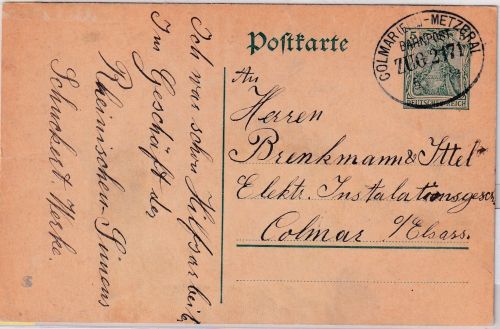 Postkarte
COLMAR (ELS)-METZERAL
BAHNPOST
ZUG 2171
DEUTSCHES REICH
An
Herren
Brenkmann & Ittel
Elektr. Instalationsgesch.
Colmar i/Elsass.
Ich war schon Hilfsarbeiter
Im Geschäft der
Rheinischen-Simens
Schuckert. Werke.